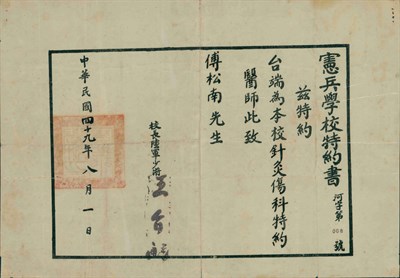 憲兵學校特約書
河字第 號
茲特約
台端為本校針灸傷科特約
醫師此致
傅松南先生
校長陸軍少將
中華民國四十九年八月一日